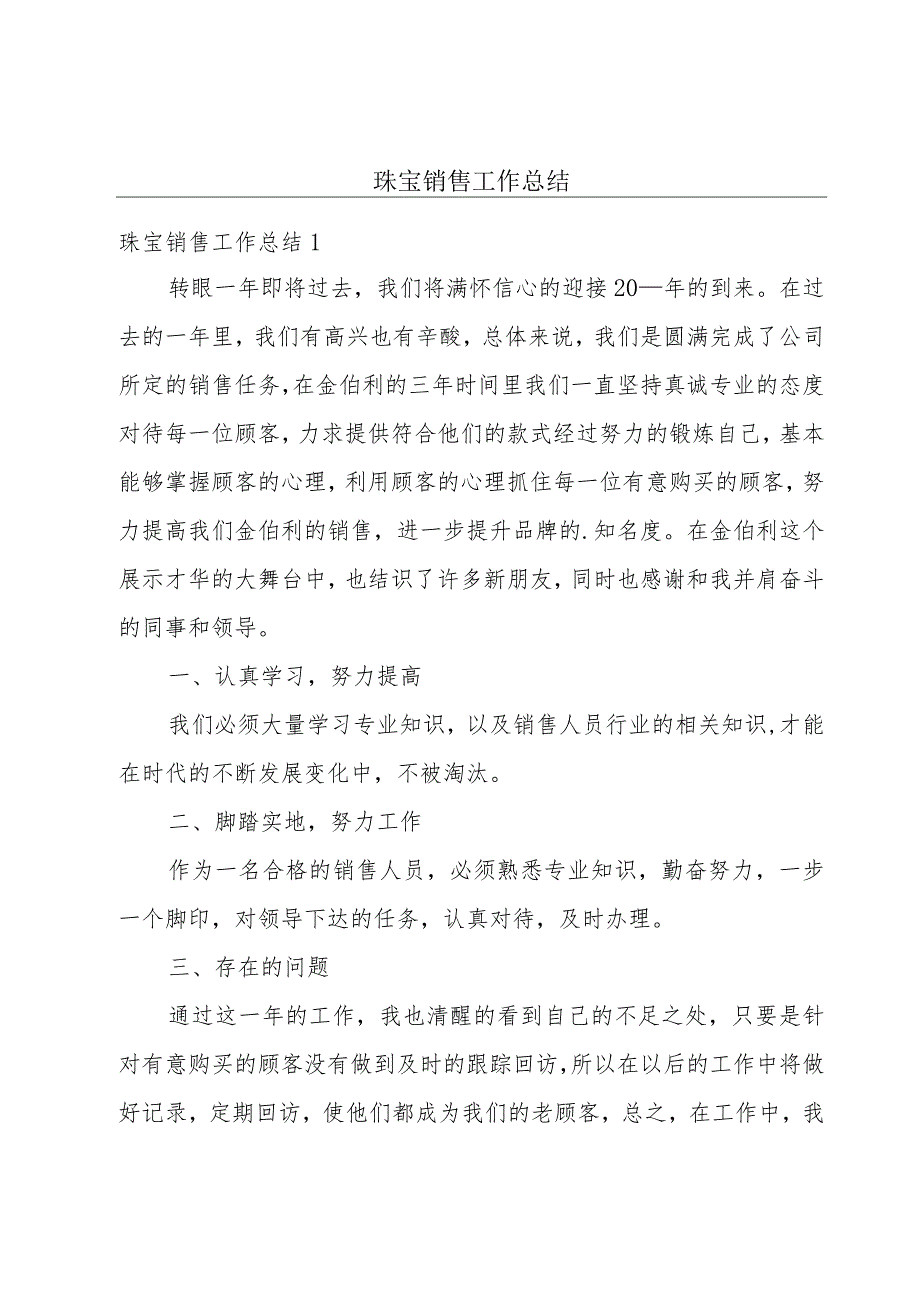 珠宝销售工作总结
珠宝销售工作总结1
转眼一年即将过去，我们将满怀信心的迎接20—年的到来。在过
去的一年里，我们有高兴也有辛酸，总体来说，我们是圆满完成了公司
所定的销售任务,在金伯利的三年时间里我们一直坚持真诚专业的态度
对待每一位顾客，力求提供符合他们的款式经过努力的锻炼自己，基本
能够掌握顾客的心理，利用顾客的心理抓住每一位有意购买的顾客，努
力提高我们金伯利的销售，进一步提升品牌的.知名度。在金伯利这个
展示才华的大舞台中，也结识了许多新朋友，同时也感谢和我并肩奋斗
的同事和领导。
一、认真学习，努力提高
我们必须大量学习专业知识，以及销售人员行业的相关知识,才能
在时代的不断发展变化中，不被淘汰。
二、脚踏实地，努力工作
作为一名合格的销售人员，必须熟悉专业知识，勤奋努力，一步
一个脚印，对领导下达的任务，认真对待，及时办理。
三、存在的问题
通过这一年的工作，我也清醒的看到自己的不足之处，只要是针
对有意购买的顾客没有做到及时的跟踪回访,所以在以后的工作中将做
好记录，定期回访，使他们都成为我们的老顾客，总之，在工作中，我